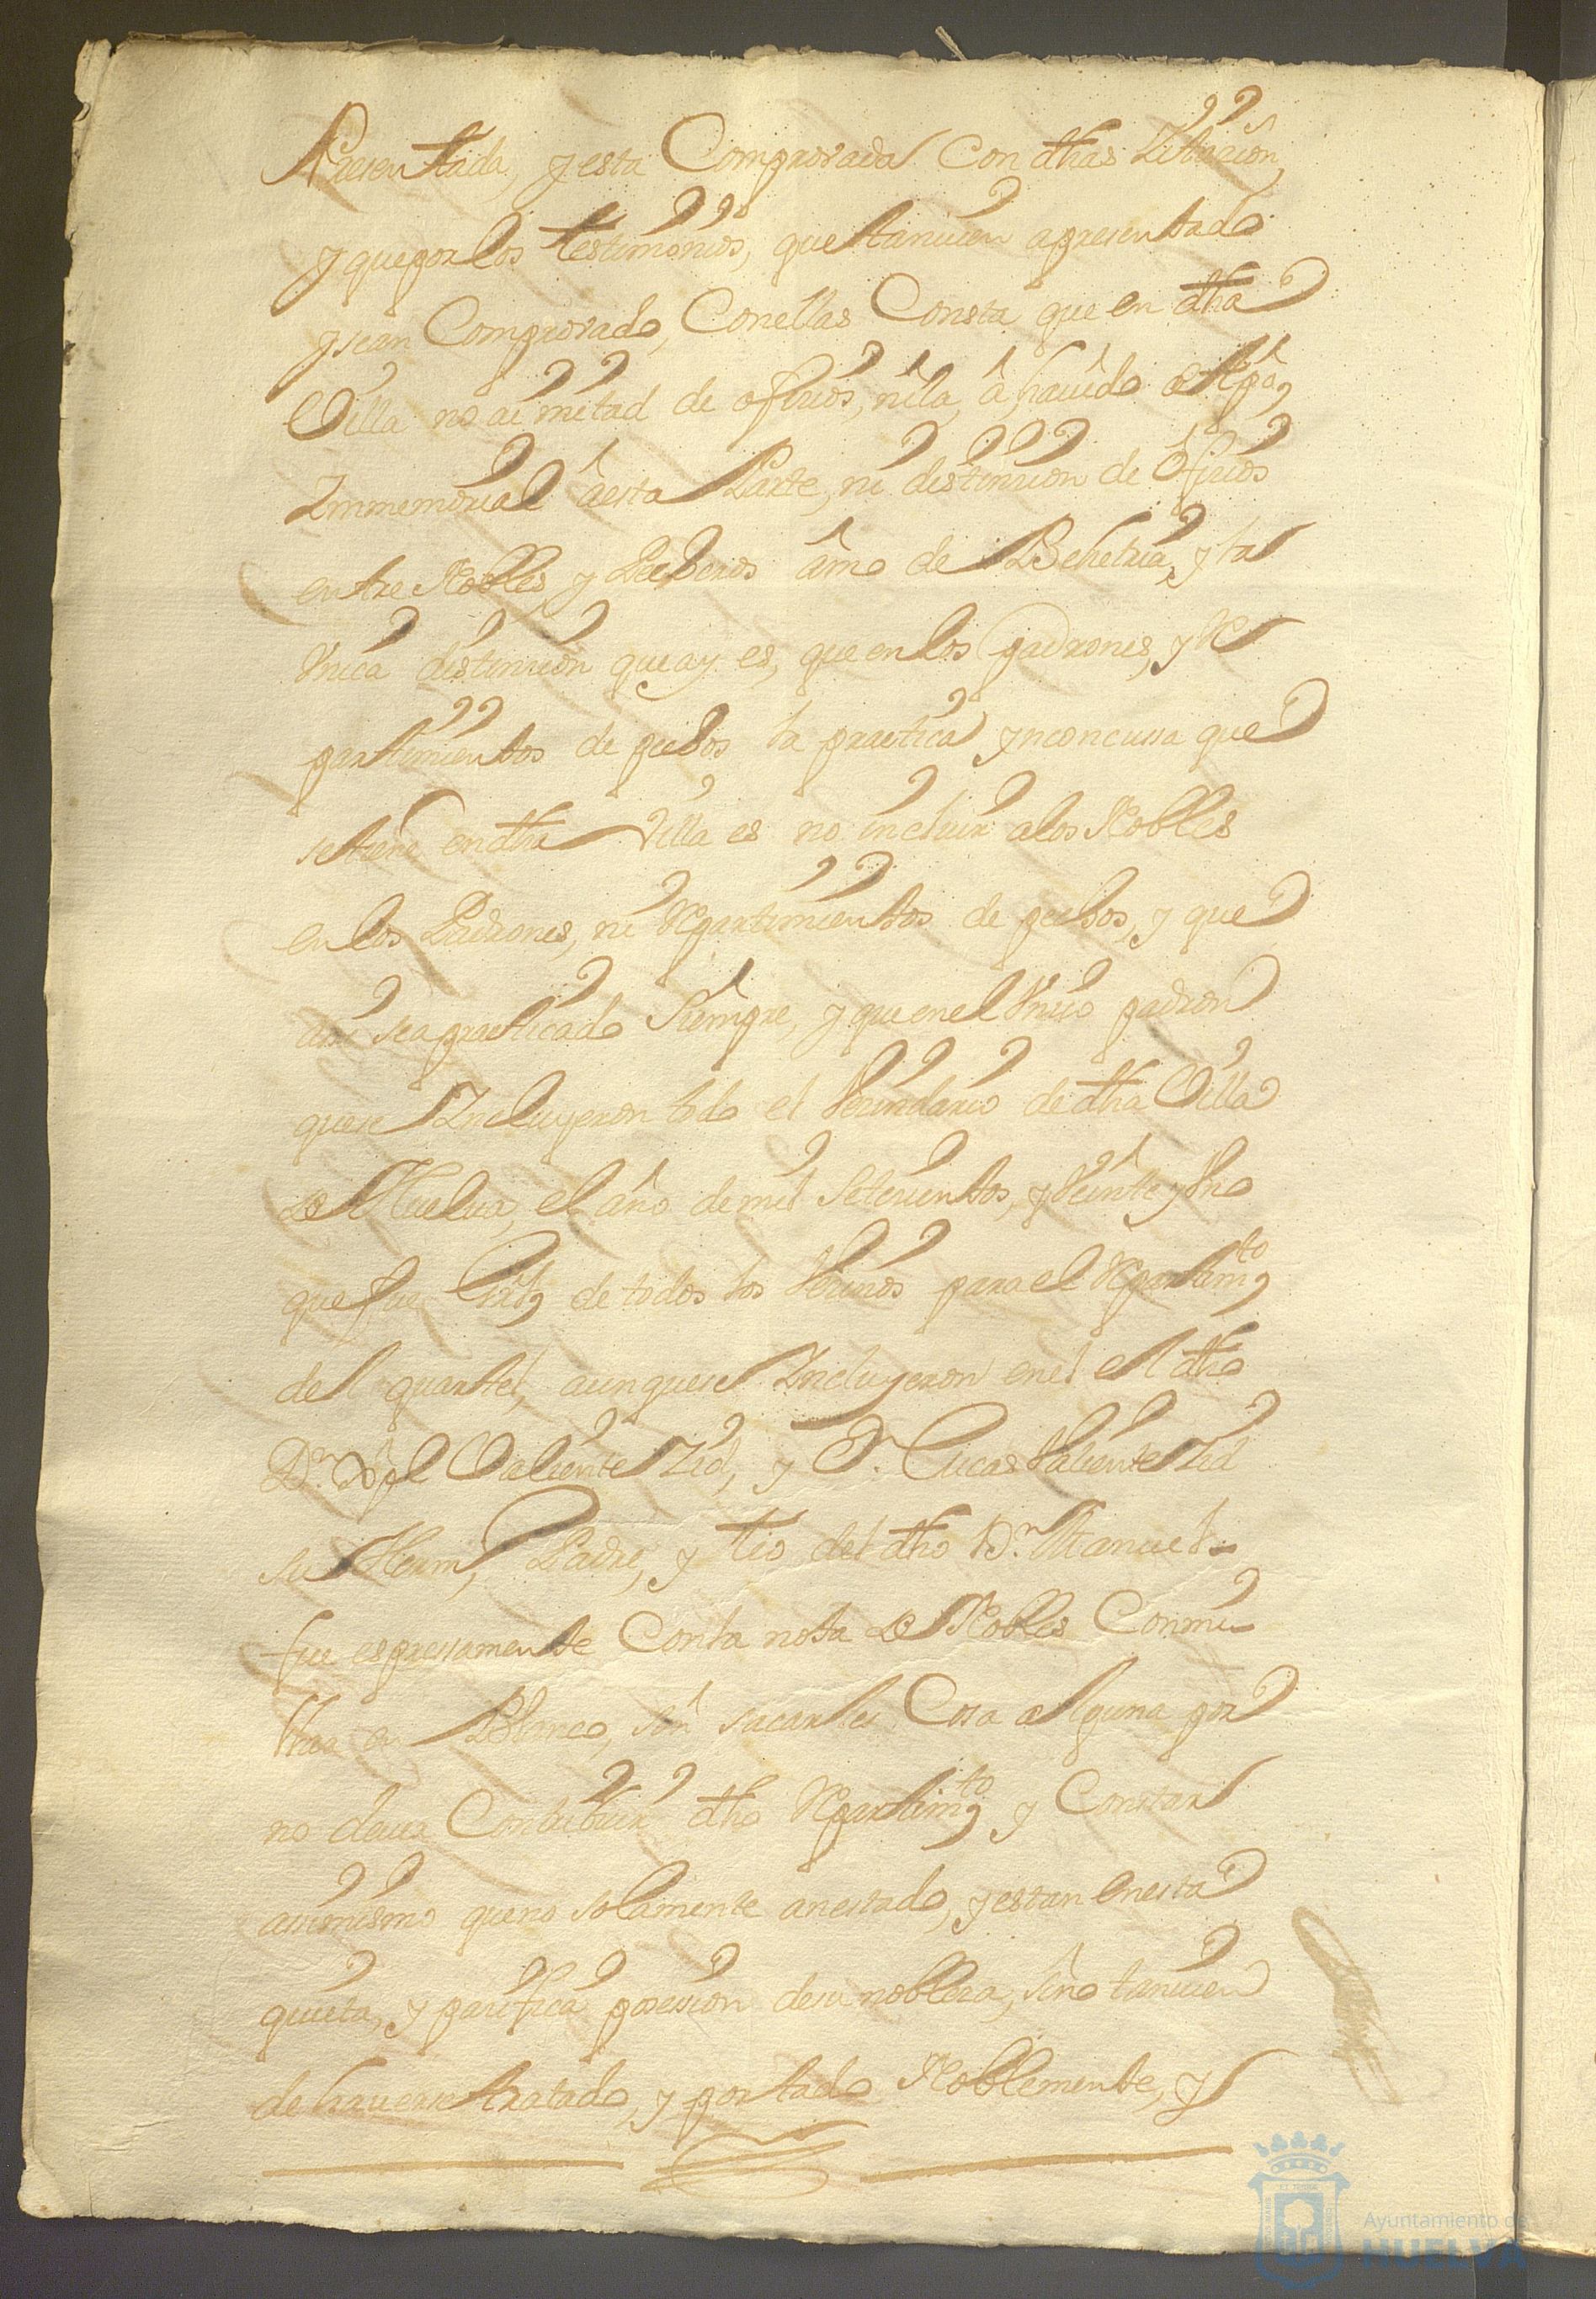 Presentada, y esta Comprovada Con dhas Zitazion
y que por los testimonios, que tanvien apresentado
y sean Comprovado, Conellas Consta que en dha
Villa no ai mitad de ofizios, nila â havido de tpô,
Immemorial âesta Parte, ni distinzion de Ofizios
entre Nobles, y Pecheros âmo de Behetria, y la
Vnica distinzion que ay es, que en los padrones, y Re
partimientos de pechos la practica ynconcusa que
se tiene en dha Villa es no incluir alos Nobles
en los Padrones, ni Repartimientos de pechos, y que
asi sea practicado Siempre, y que en el Vnico padron
que se Incluyeron todo el Vezindario de dha Villa
de Huelva, el año de mil Setezientos, y Veinte y Vno
que fue de todos los Vezinos para el Repartimto,
del quartel, aunque se Incluyeron enel el dho
Dn. Xptl Valiente Zid, y Dn. Lucas Valiente Zid
su Herm, Padre, y tio del dho Dn. Manuel
fue espresamente Conla nota de Nobles Con
en Blanco, sin sacarles Cosa alguna por
no devia Contribuir dho Repartimto, y Constar
asimismo que no solamente an estado, y estan en esta
quieta, y pazifica posesion de su nobleza, sino tanvien
de haverse tratado, y portado Noblemente, y
Ayuntamiento de
HUELVA